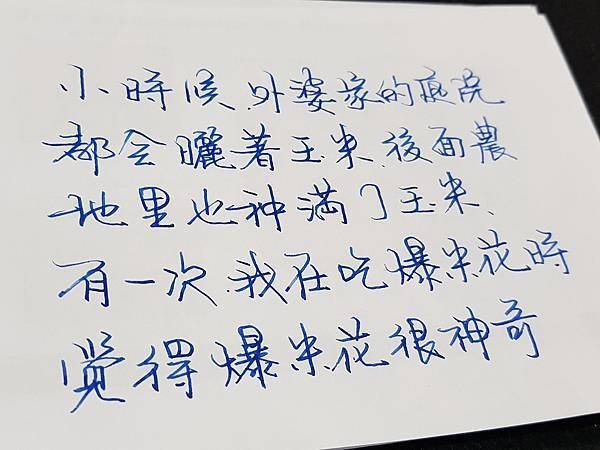 小時候.外婆家的庭院
都会曬著玉米.後面農
地里也种滿了玉米、
有一次.我在吃爆米花時
覺得爆米花很神奇